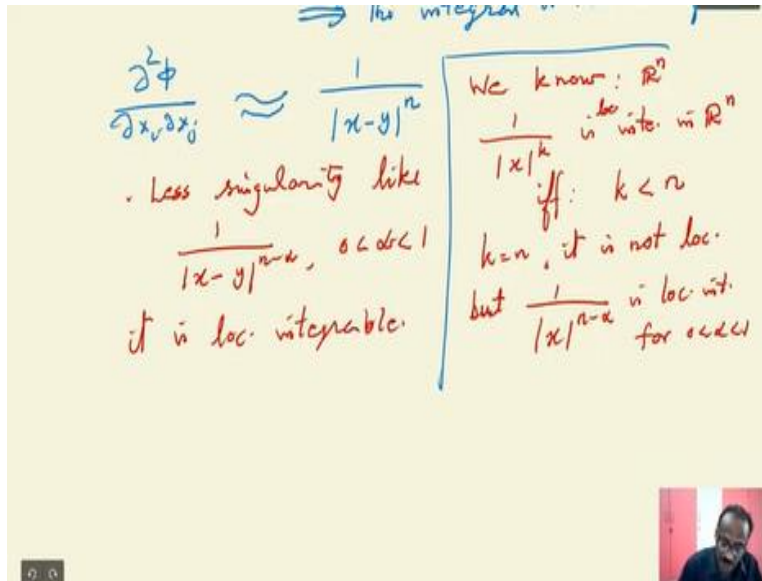 ⟹ The integral
∂²ϕ/∂xᵢ∂xⱼ ≈ 1/|x-y|ⁿ
. Less singularity like
1/|x-y|ⁿ⁻ᵅ, 0<α<1
it is loc. integrable.
We know: ℝⁿ
1/|x|ᵏ is loc inte. in ℝⁿ
iff: k < n
k=n, it is not loc.
but 1/|x|ⁿ⁻ᵅ is loc. int.
for 0<α<1